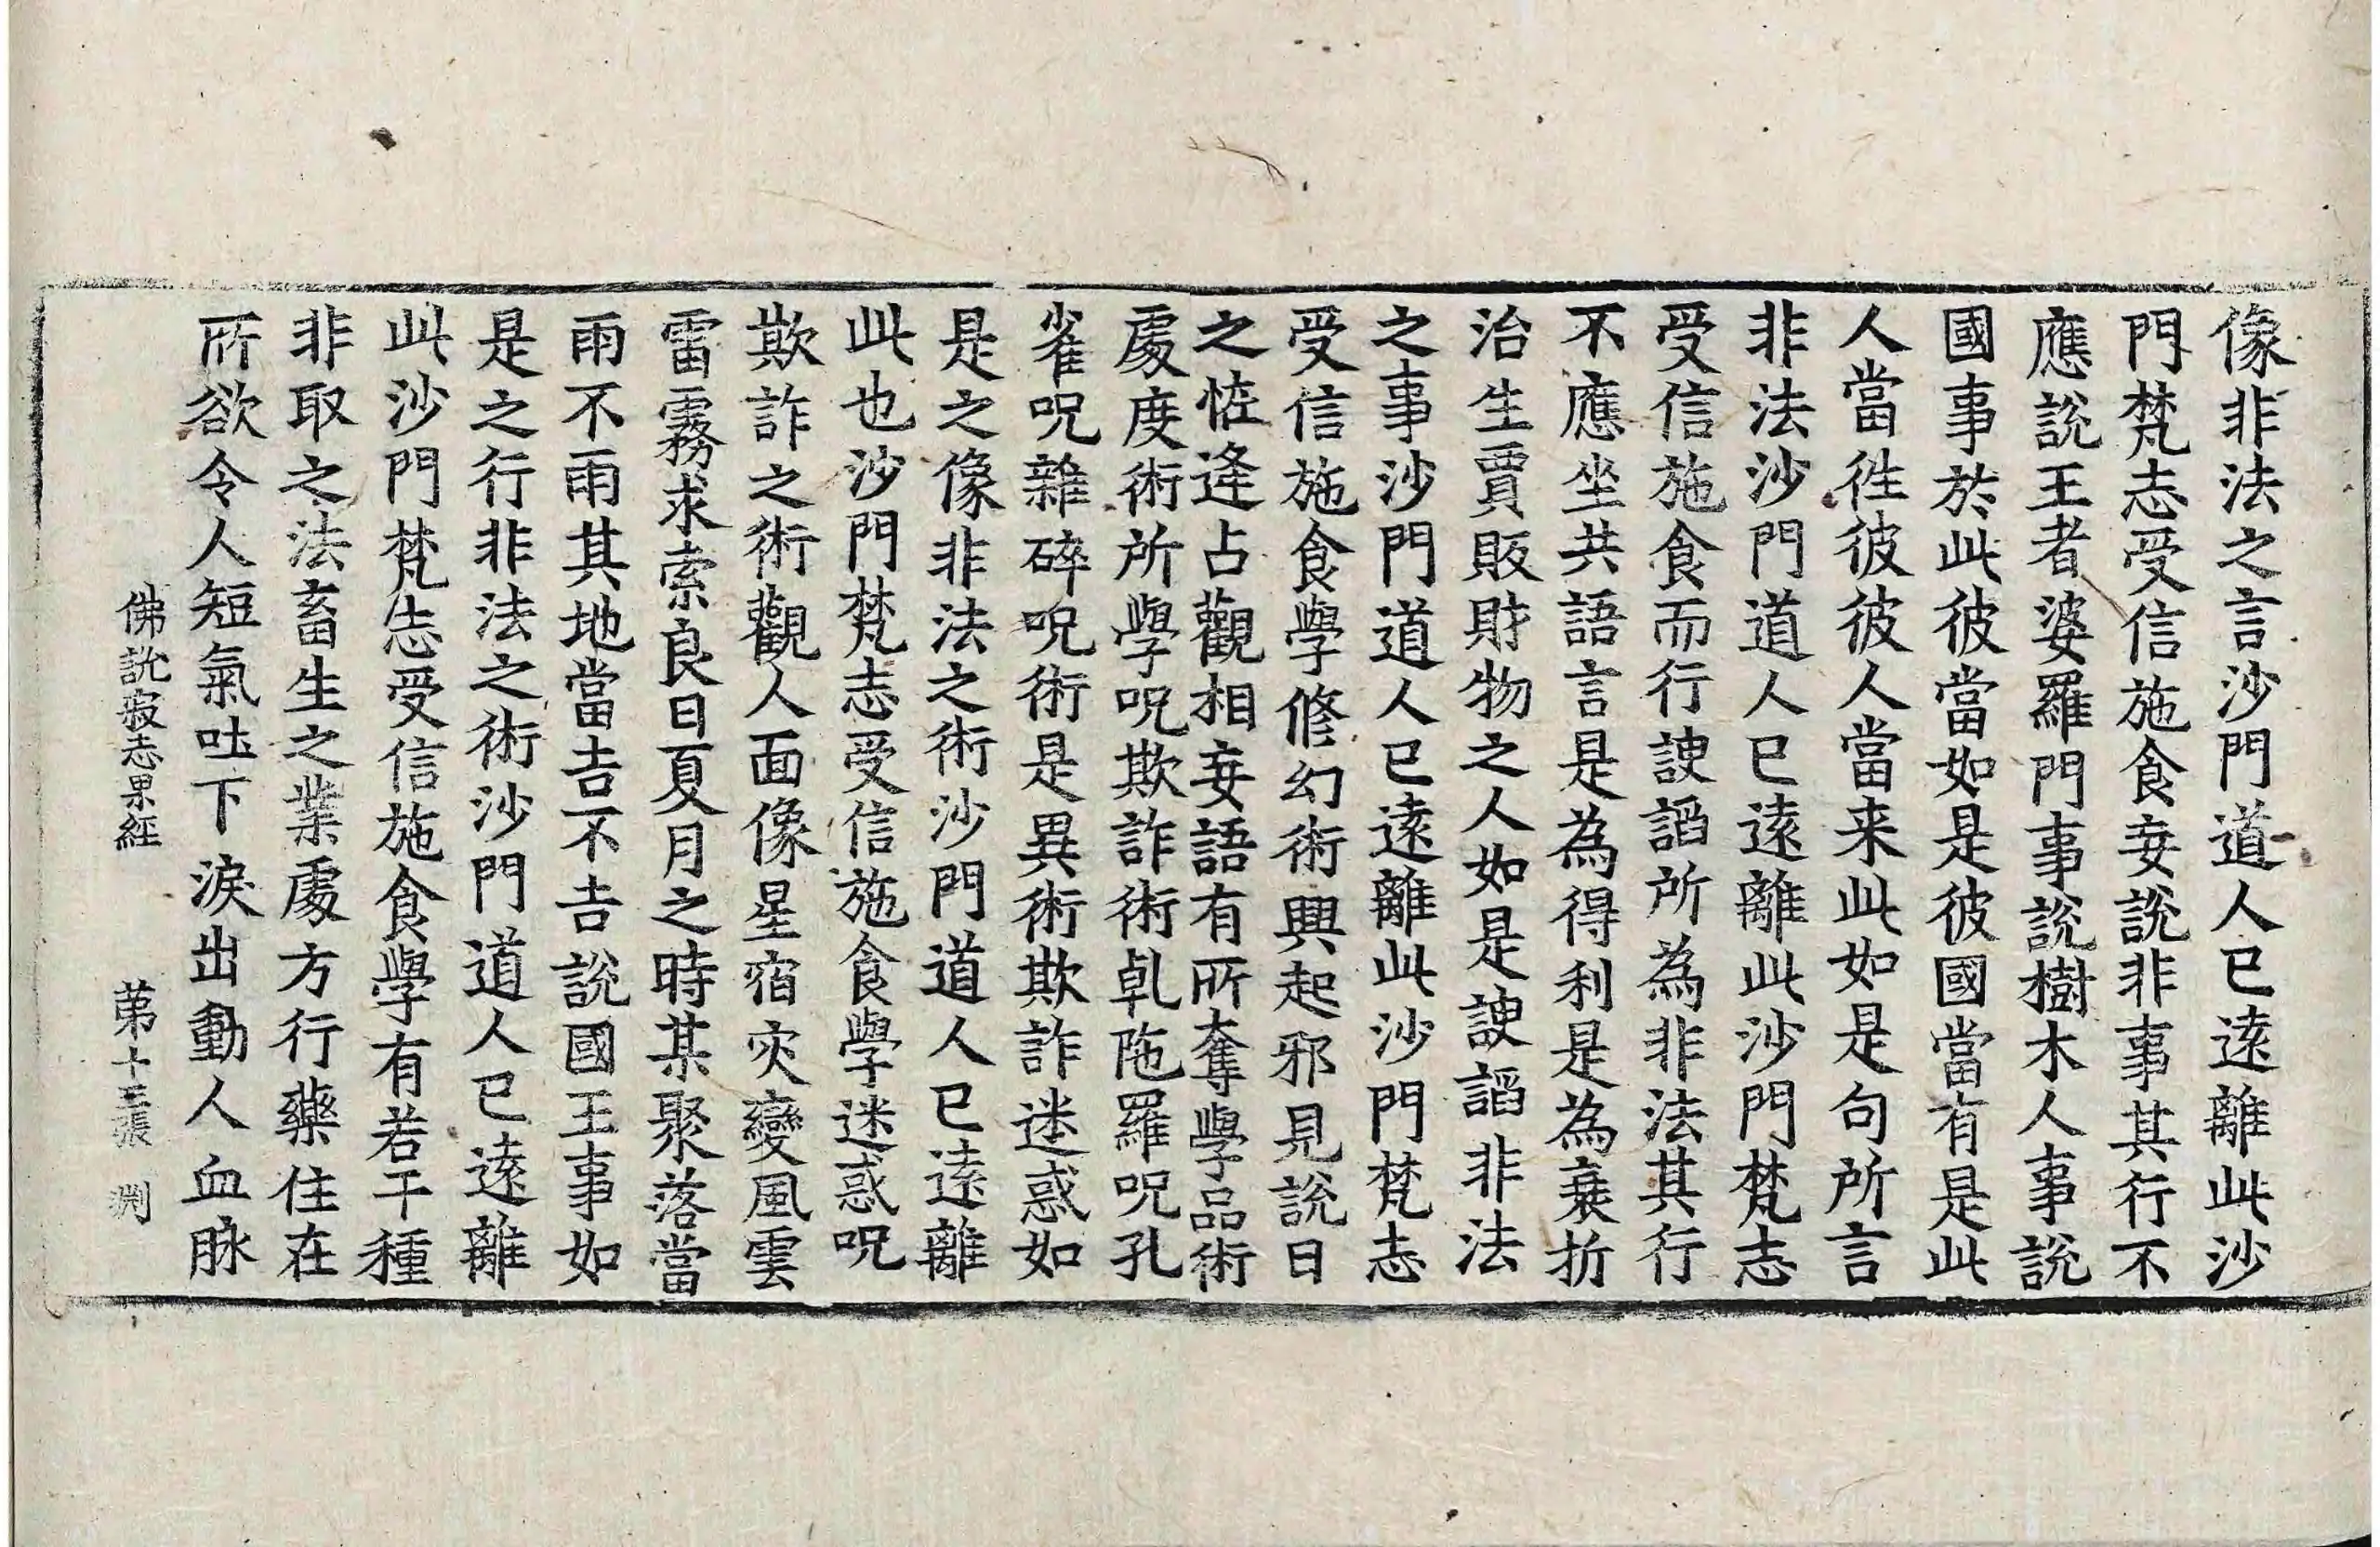 像非法之言沙門道人已遠離此沙
門梵志受信施食妄說非事其行不
應說王者婆羅門事說樹木人事說
國事於此彼當如是彼國當有是此
人當徃彼彼人當来此如是句所言
非法沙門道人已遠離此沙門梵志
受信施食而行諛諂所為非法其行
不應坐共語言是為得利是為衰折
治生賈販財物之人如是諛諂非法
之事沙門道人已遠離此沙門梵志
受信施食學修幻術興起邪見說日
之恠逄占觀相妄語有所奪學品術
處度術所學呪欺詐術乹陁羅呪孔
雀呪雜碎呪術是異術欺詐迷惑如
是之像非法之術沙門道人已遠離
此也沙門梵志受信施食學迷惑呪
欺詐之術觀人面像星宿灾變風雲
雷霧求索良日夏月之時某聚落當
雨不雨其地當吉不吉說國王事如
是之行非法之術沙門道人已遠離
此沙門梵志受信施食學有若干種
非取之法畜生之業處方行藥住在
所欲令人短氣吐下淚出動人血脉
佛說寂志果經 第十三張 渕